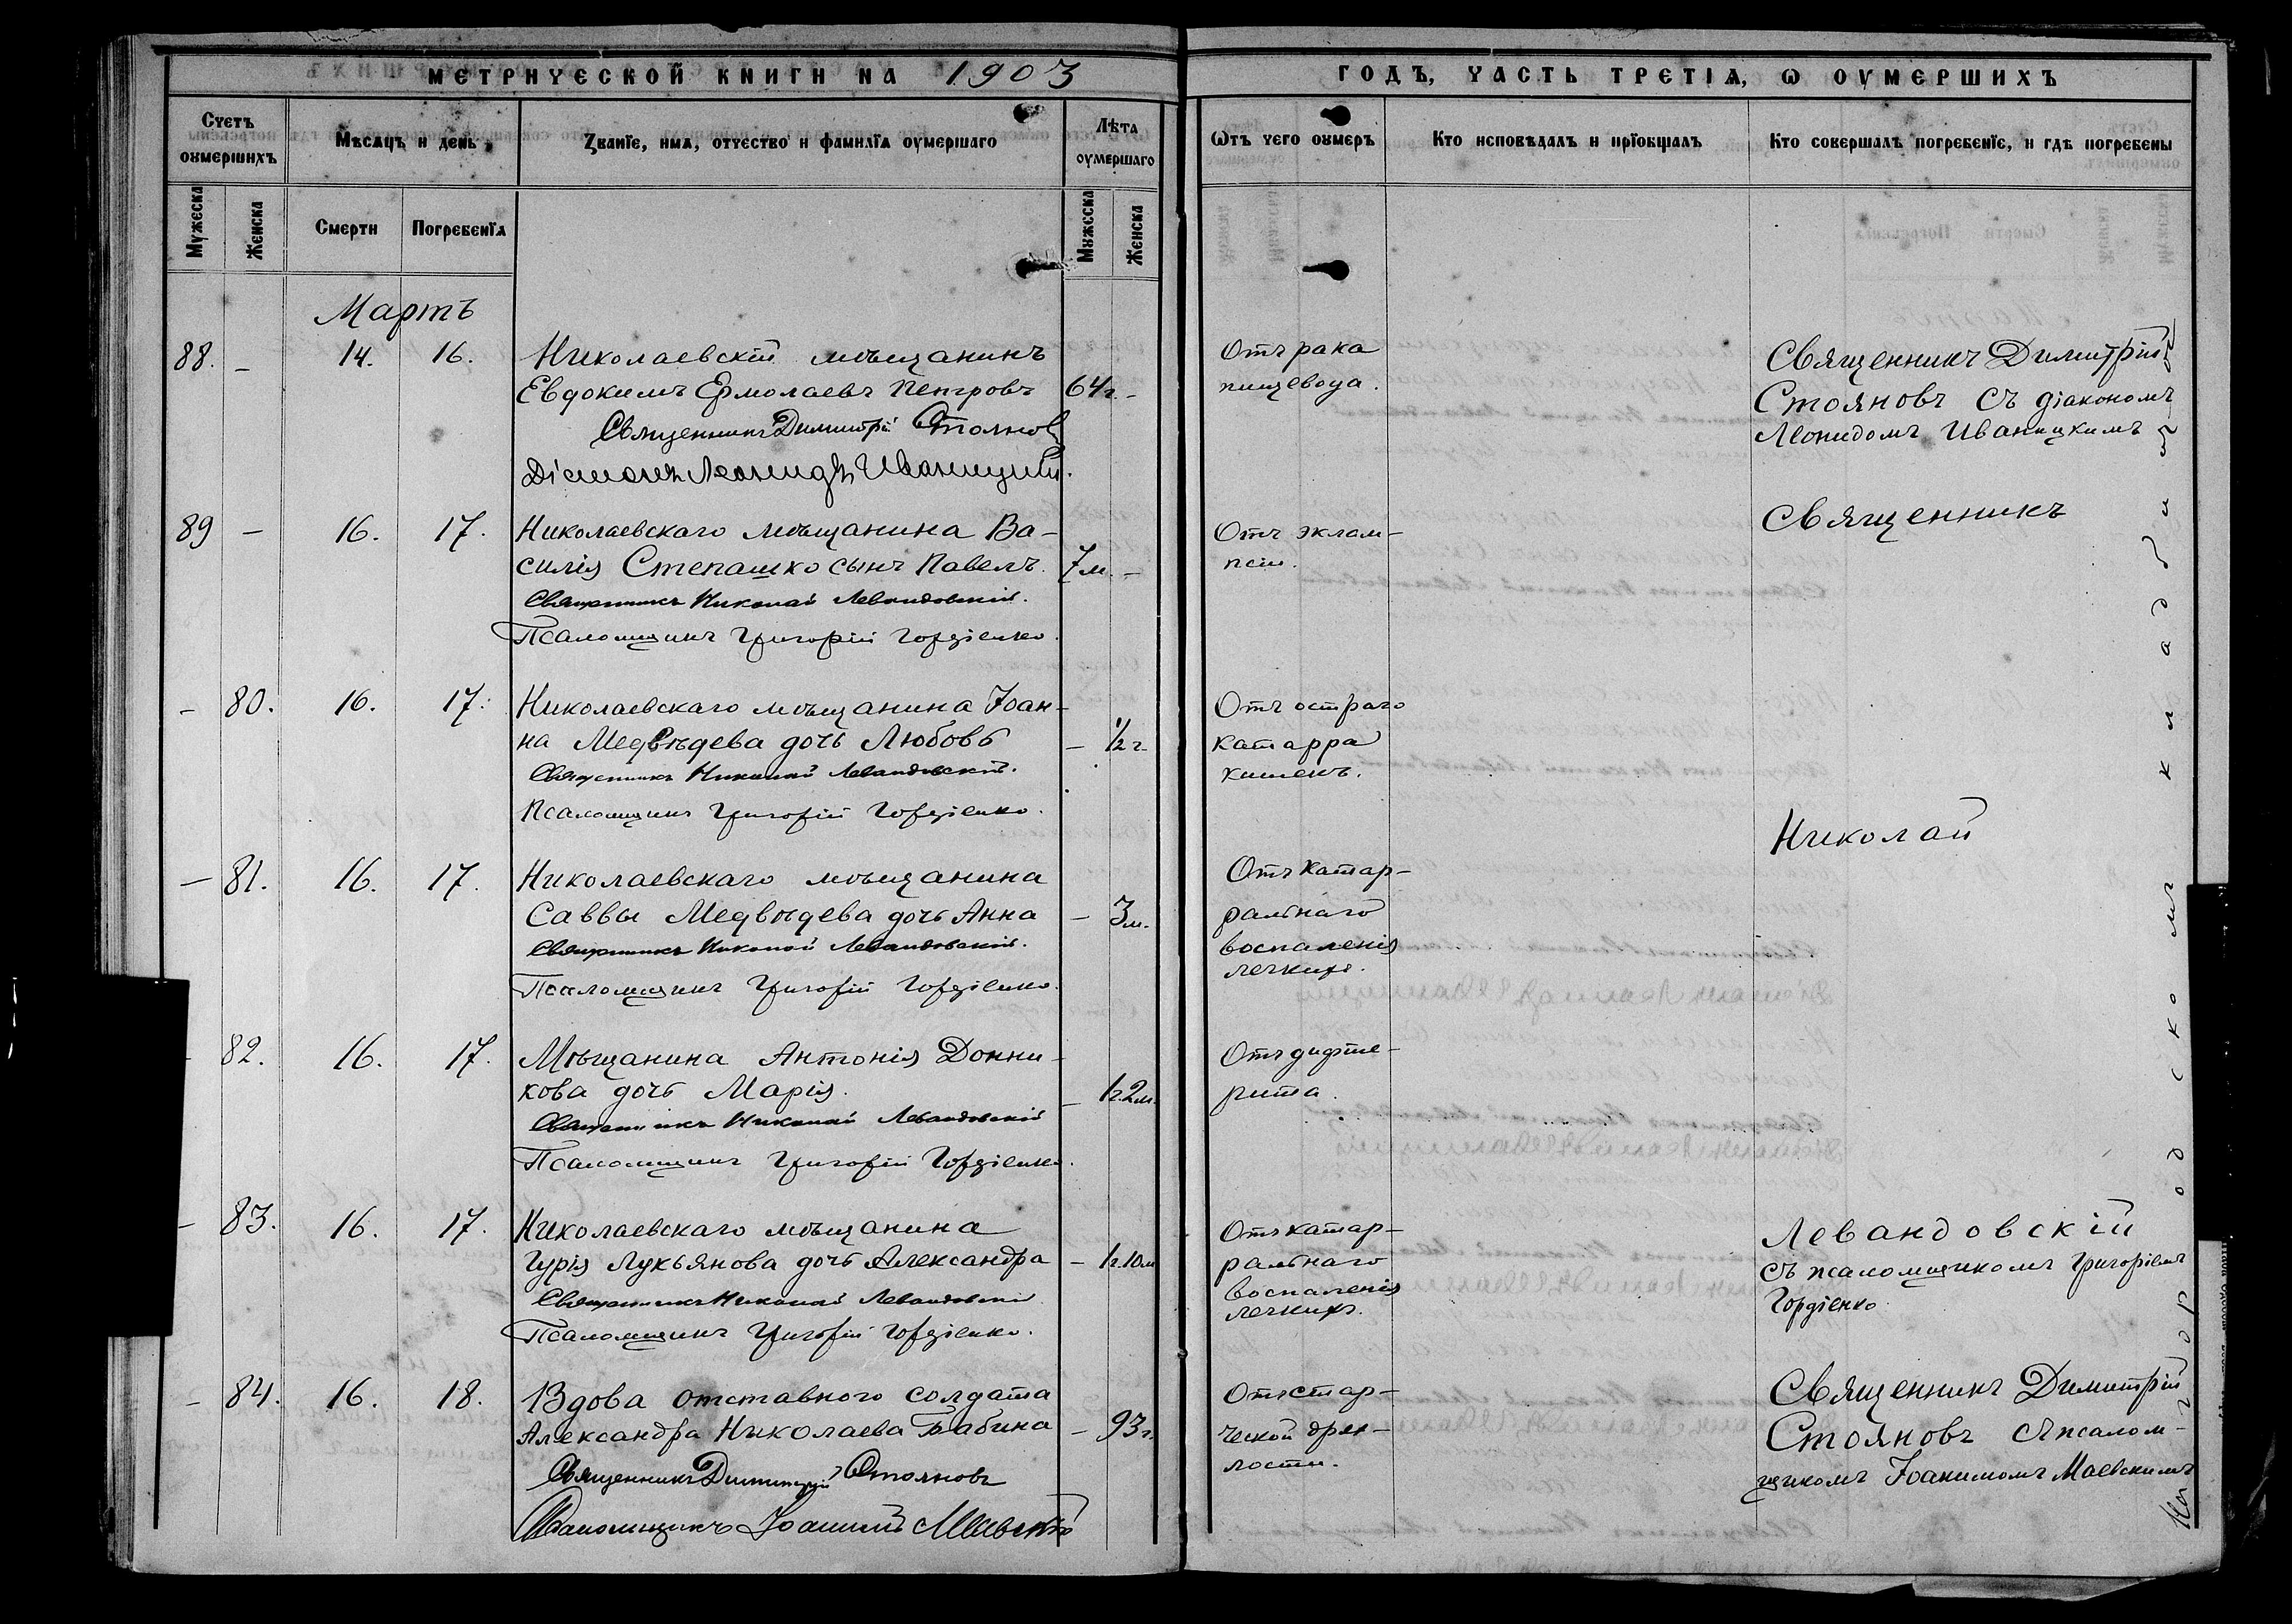 МЕТРИЧЕСКОЙ КНИГИ НА 1903
ГОДЪ, ЧАСТЬ ТРЕТІѦ, Ѡ ОУМЕРШИХЪ
Счетъ оумершихъ
Мѣсяцъ и день
Званїе, имѧ, отчество и фамилїѧ оумершаго
Лѣта оумершаго
Ѿтъ чего оумеръ
Кто исповѣдалъ и прїобщалъ
Кто совершалъ погребенїе, и гдѣ погребены
Мужеска
Женска
Смерти
Погребенїѧ
Мужеска
Женска
Мартъ
88. – 14. 16. Николаевскій мѣщанинъ
Евдокимъ Ермолаевъ Петровъ 64г. –
Священникъ Димитрій Стояновъ
Діаконъ Леонидъ Иваницкій.
Отъ рака
пищевода.
Священникъ Димитрій
Стояновъ съ діакономъ
Леонидомъ Иваницкимъ
89 – 16. 17. Николаевскаго мѣщанина Ва-
силія Степашко сынъ Павелъ. 7м. –
Священникъ Николай Левандовскій.
Псаломщикъ Григорій Гордіенко.
Отъ эклам-
псіи.
Священникъ
– 80. 16. 17. Николаевскаго мѣщанина Іоан-
на Медвѣдева дочь Любовь – ½ г.
Священникъ Николай Левандовскій.
Псаломщикъ Григорій Гордіенко.
Отъ остраго
катарра
кишекъ.
Николай
– 81. 16. 17. Николаевскаго мѣщанина
Саввы Медвѣдева дочь Анна – 3м.
Священникъ Николай Левандовскій.
Псаломщикъ Григорій Гордіенко.
Отъ катар-
ральнаго
воспаленія
легкихъ.
– 82. 16. 17. Мѣщанина Антонія Донни-
кова дочь Марія. – 1г.2м.
Священникъ Николай Левандовскій
Псаломщикъ Григорій Гордіенко.
Отъ дифте-
рита.
– 83. 16. 17. Николаевскаго мѣщанина
Гурія Лукьянова дочь Александра – 1г.10м
Священникъ Николай Левандовскій
Псаломщикъ Григорій Гордіенко.
Отъ катар-
ральнаго
воспаленія
легкихъ.
Левандовскій
съ псаломщикомъ Григоріемъ
Гордіенко
– 84. 16. 18. Вдова отставного солдата
Александра Николаева Бабина – 93г.
Священникъ Димитрій Стояновъ
Псаломщикъ Іоакимъ Маевскій
Отъ стар-
ческой дрях-
лости.
Священникъ Димитрій
Стояновъ съ псалом-
щикомъ Іоакимомъ Маевскимъ
На городскомъ кладбищѣ